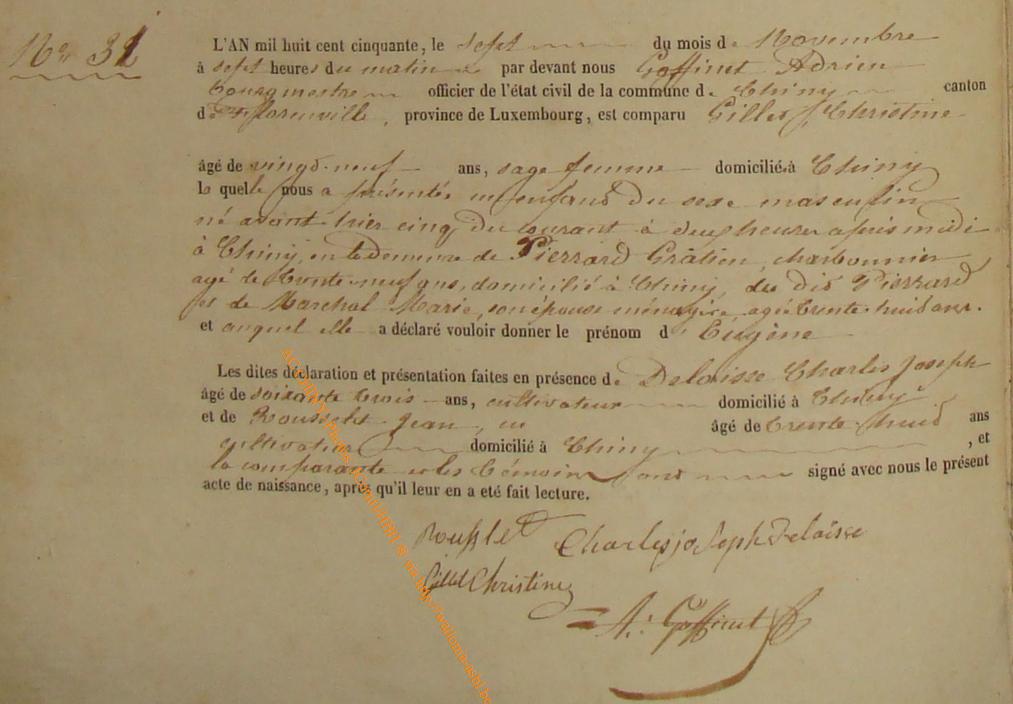 No 31
L'AN mil huit cent cinquante, le sept du mois de Novembre
à sept heures du matin par devant nous Goffinet Adrien
bourgmestre officier de l'état civil de la commune de Chiny canton
de florenville, province de Luxembourg, est comparu Gillet Christine
âgé de vingt-neuf ans, sage femme domicilié à Chiny
la quelle nous a présenté un enfant du sexe masculin
né avant hier cinq du courant à deux heures après midi
à Chiny, en la demeure de Pierrard Gratien, charbonnier
agé de trente-neuf ans, domicilié à Chiny, du dit Pierrard
et de Marchal Marie, son épouse ménagère, agée trente huit ans.
et auquel elle a déclaré vouloir donner le prénom d'Eugène
Les dites déclaration et présentation faites en présence de Delaisse Charles Joseph
âgé de soixante trois ans, cultivateur domicilié à Chiny
et de Rousselet Jean, âgé de trente huit ans
cultivateur domicilié à Chiny, et
la comparante et les témoins ont signé avec nous le présent
acte de naissance, après qu'il leur en a été fait lecture.
Rousslet Charles joseph Delaisse
Gillet Christine
A. Goffinet